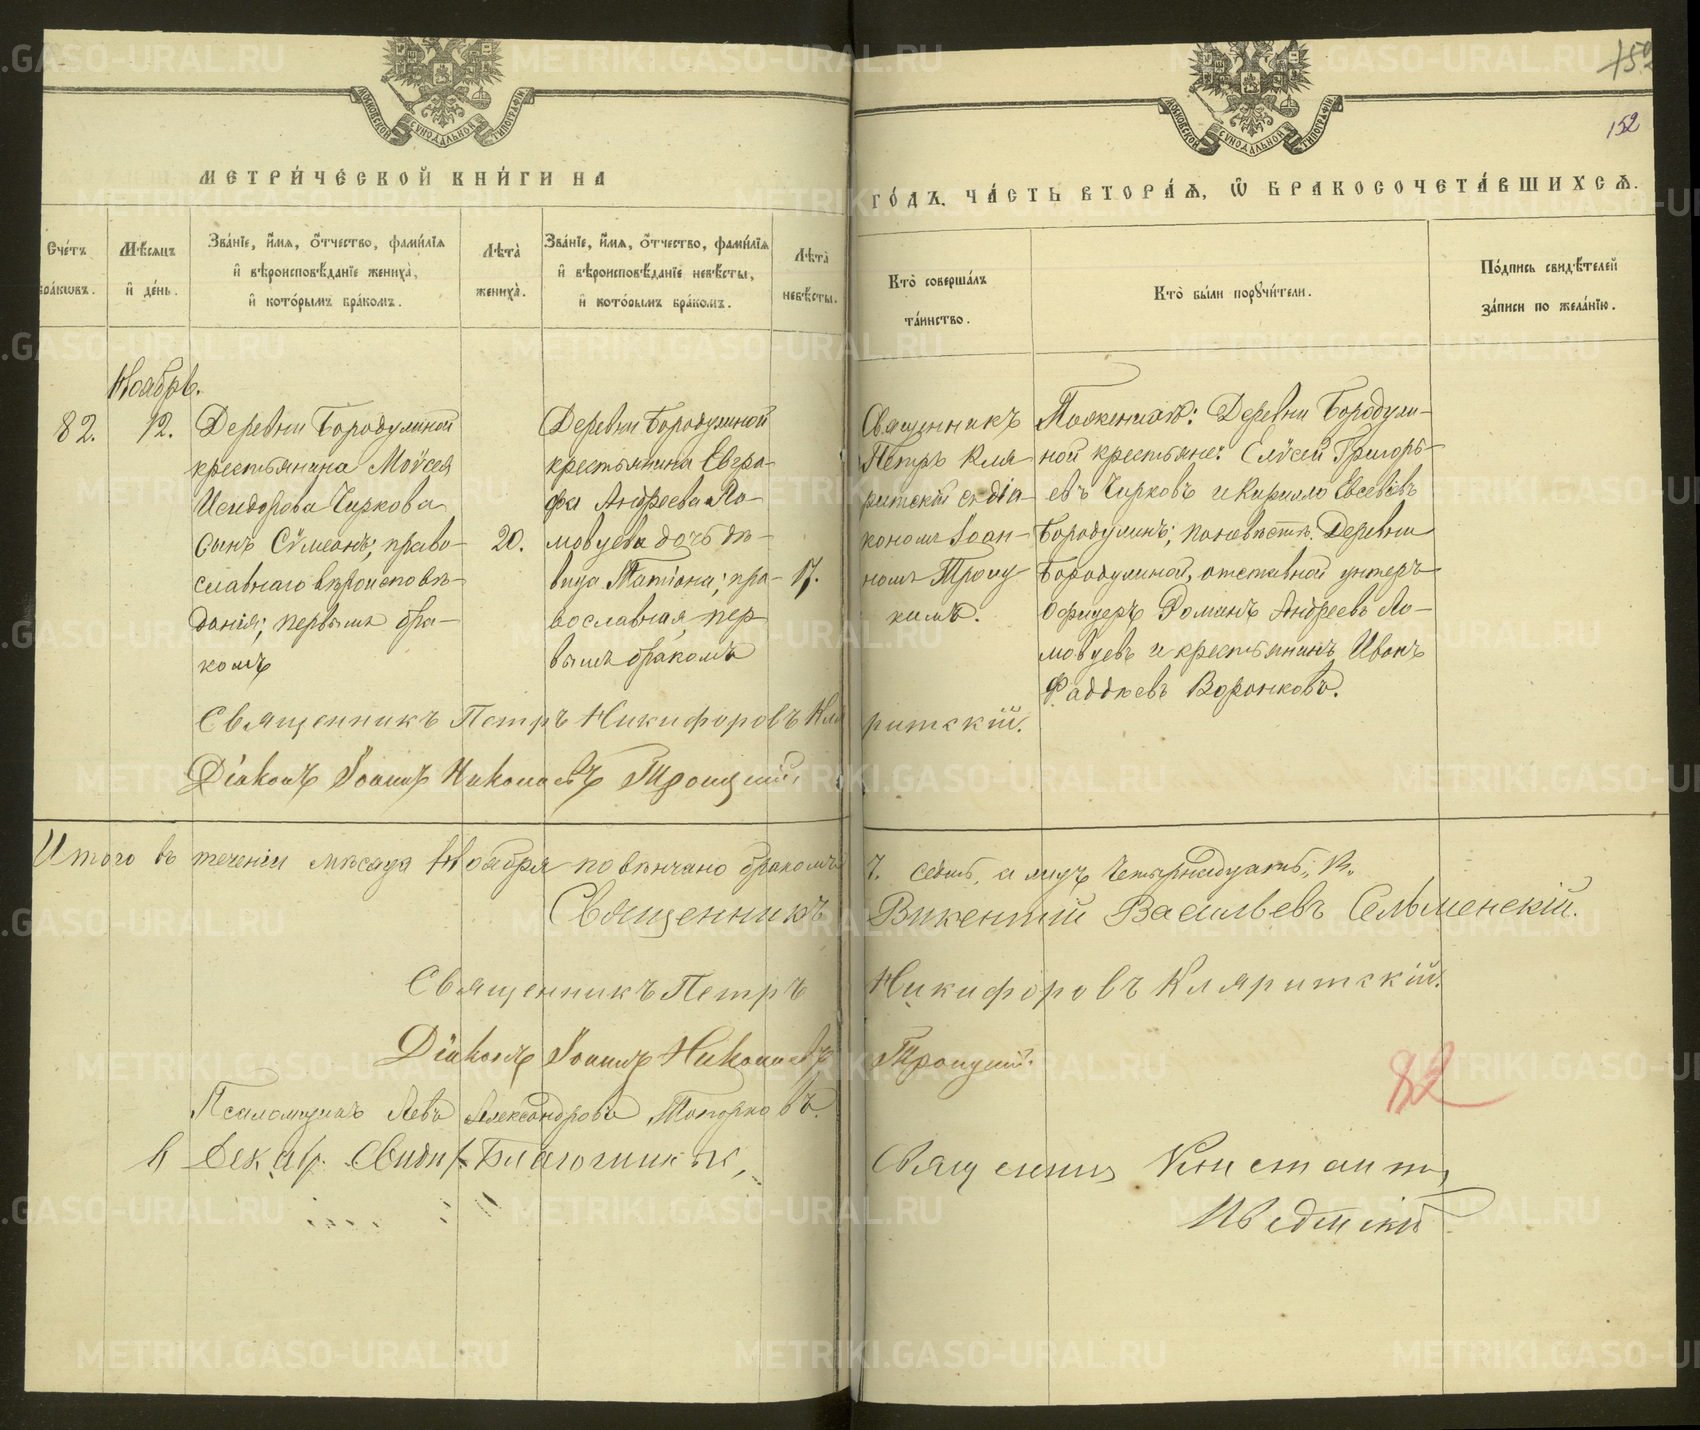 МЕТРИ́ЧЕСКОЙ КНИ́ГИ НА
ГО́ДЪ, ЧА́СТЬ ВТОРА́Ѧ, Ѽ БРАКОСОЧЕТА́ВШИХСѦ.
152
Сче́тъ бра́кѡвъ.
Мѣ́сяцъ и҆ де́нь.
Зва́нїе, и҆́мя, о҆́тчество, фамѝлїя
и҆ вѣроисповѣ́данїе жениха̀,
и҆ кото́рымъ бра́комъ.
Лѣта̀ жениха̀.
Зва́нїе, и҆́мя, о҆́тчество, фамѝлїя
и҆ вѣроисповѣ́данїе невѣ́сты,
и҆ кото́рымъ бра́комъ.
Лѣта̀ невѣ́сты.
Кто̀ соверша́лъ та́инство.
Кто̀ бы́ли порꙋчи́тели.
По́дпись свидѣ́телей
за́писи по жела́нїю.
Ноябрь.
82.
12.
Деревни Бородулиной
крестьянина Моѵсея
Исидорова Чиркова
сынъ Сѵмеонъ; право-
славнаго вѣроисповѣ-
данія; первымъ бра-
комъ
20.
Деревни Бородулиной
крестьянина Евгра-
фа Андреева Ло-
мовцева дочь дѣ-
вица Татіана; пра-
вославная, пер-
вымъ бракомъ
17.
Священникъ
Петръ Кля
ритскій съ діа-
кономъ Іоан-
номъ Троиц
кимъ.
По женихѣ: Деревни Бородули-
ной крестьяне: Елѵсей Григорь-
евъ Чирковъ и Кирилло Евсевіевъ
Бородулинъ; по невѣстѣ: Деревни
Бородулиной, отставной унтеръ
офицеръ Романъ Андреевъ Ло-
мовцевъ и крестьянинъ Иванъ
Фаддѣевъ Воронковъ.
Священникъ Петръ Никифоровъ Кляритскій.
Діаконъ Іоаннъ Николаевъ Троицкій
Итого въ теченіи мѣсяца Ноября повѣнчано браковъ 7. седмь, а лицъ четырнадцать
Священникъ Викентій Васильевъ Сельменскій.
Священникъ Петръ Никифоровъ Кляритскій.
Діаконъ Іоаннъ Николаевъ Троицкій.
Псаломщикъ Левъ Александровъ Топорковъ.
82
Благочинный, Священникъ Константинъ
METRIKI.GASO-URAL.RU